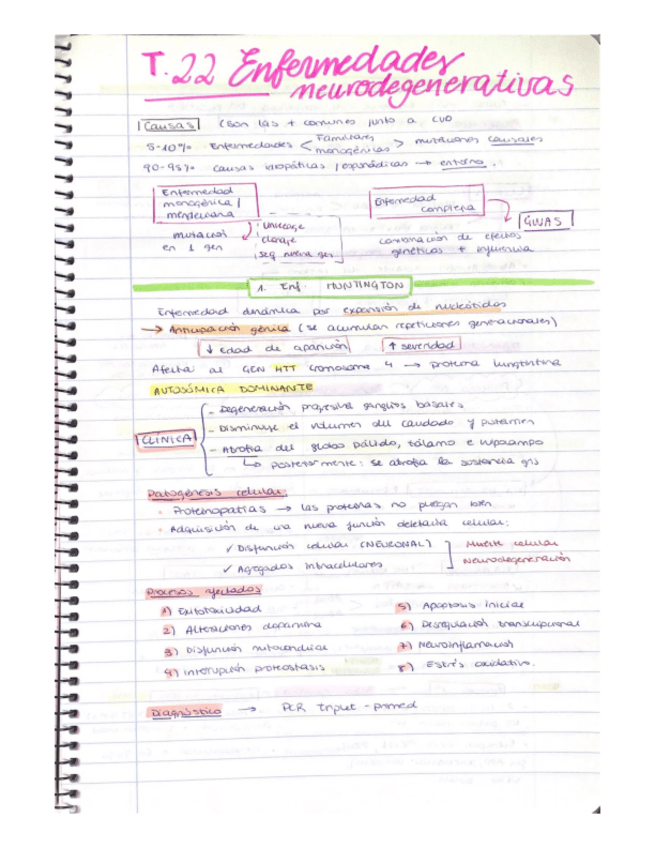 T.22 Enfermedades
neurodegenerativas
Causas (Son las + comunes junto a CVO
5-10% Enfermedades < Familiares monogénicas > mutaciones causales
90-95% causas idiopáticas / esporádicas → entorno.
Enfermedad monogénica / mendeliana
mutación en 1 gen
linkage
clonaje
seq nueva gen
Enfermedad compleja
GWAS
combinación de efectos genéticos + influencia
1. Enf. HUNTINGTON
Enfermedad dinámica por expansión de nucleótidos
→ Anticipación génica (se acumulan repeticiones generacionales)
↓ edad de aparición ↑ severidad
Afecta al GEN HTT cromosoma 4 → proteína huntingtina
AUTOSÓMICA DOMINANTE
CLÍNICA
- Degeneración progresiva ganglios basales
- Disminuye el volumen del caudado y putamen
- Atrofia del globo pálido, tálamo e hipocampo
↳ posteriormente: se atrofia la sustancia gris
Patogénesis celular
• Proteinopatías → las proteínas no pliegan bien
• Adquisición de una nueva función deletérea celular:
✓ Disfunción celular (NEURONAL)
✓ Agregados intracelulares
Muerte celular
Neurodegeneración
Procesos afectados
1) Exitotoxicidad
2) Alteraciones dopamina
3) Disfunción mitocondrial
4) interrupción proteostasis
5) Apoptosis inicial
6) Desregulación transcripcional
7) Neuroinflamación
8) Estrés oxidativo.
Diagnóstico → PCR triplet-primed